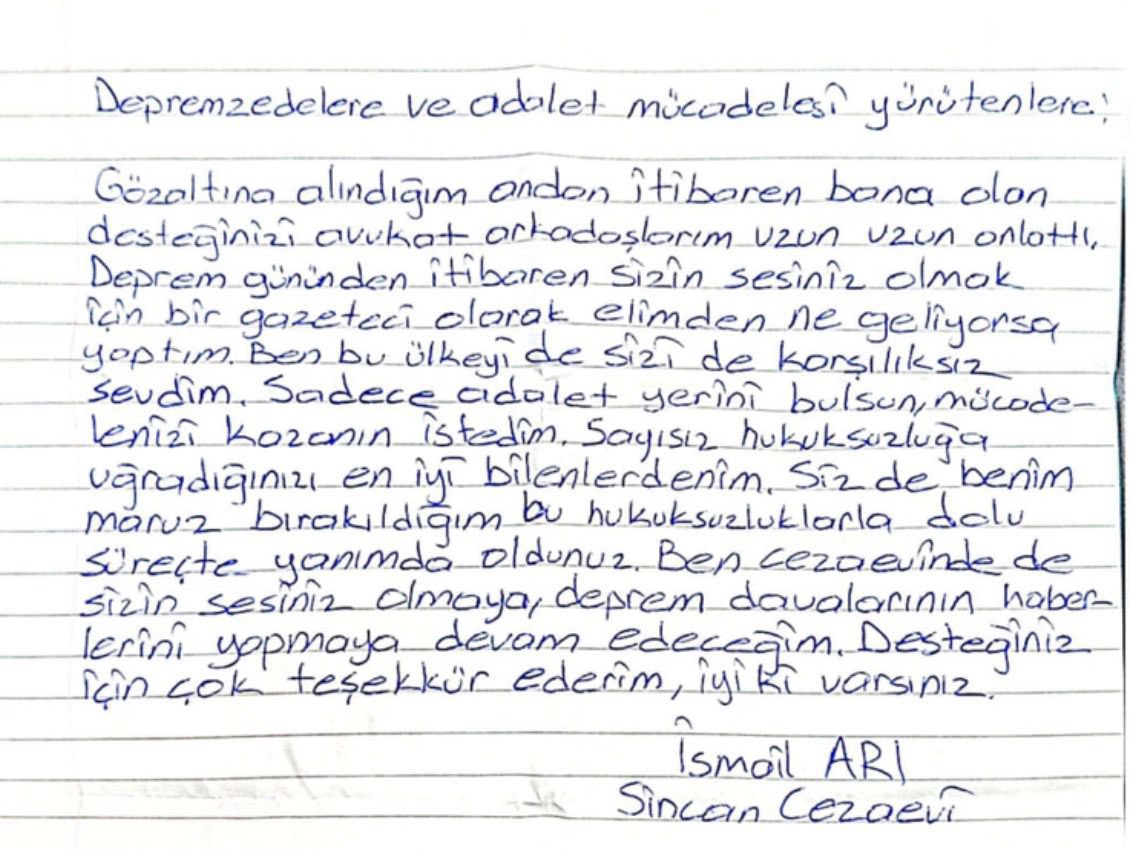 Depremzedelere ve adalet mücadelesi yürütenlere;
Gözaltına alındığım andan itibaren bana olan
desteğinizi avukat arkadaşlarım uzun uzun anlattı.
Deprem gününden itibaren sizin sesiniz olmak
için bir gazeteci olarak elimden ne geliyorsa
yaptım. Ben bu ülkeyi de sizi de karşılıksız
sevdim. Sadece adalet yerini bulsun, mücade-
lenizi kazanın istedim. Sayısız hukuksuzluğa
uğradığınızı en iyi bilenlerdenim. Siz de benim
maruz bırakıldığım bu hukuksuzluklarla dolu
süreçte yanımda oldunuz. Ben cezaevinde de
sizin sesiniz olmaya, deprem davalarının haber-
lerini yapmaya devam edeceğim. Desteğiniz
için çok teşekkür ederim, iyi ki varsınız.
İsmail ARI
Sincan Cezaevi